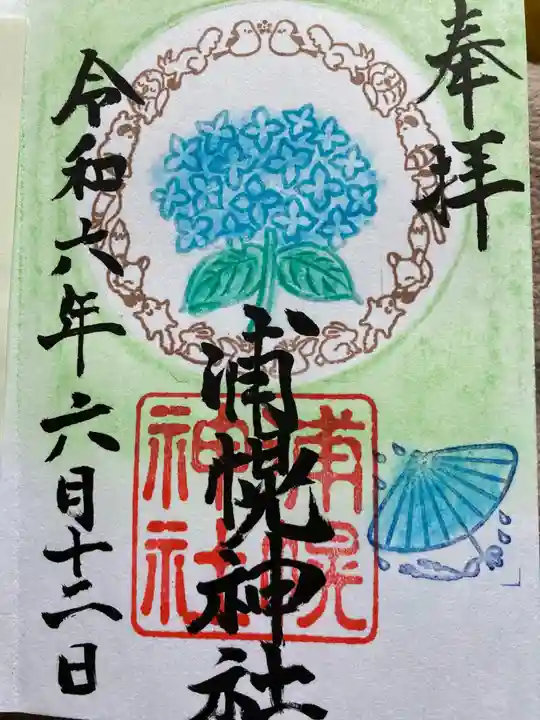 奉拝
浦幌神社
浦幌
神社
令和六年六月十二日